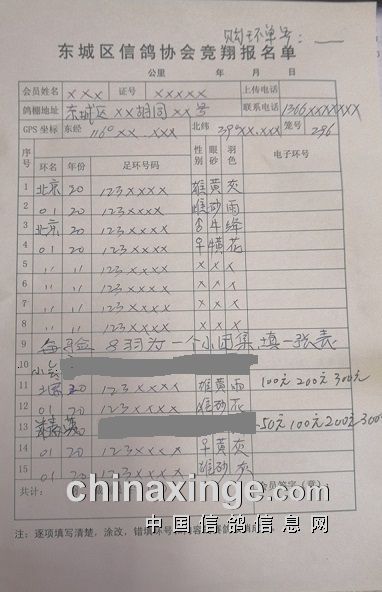 购环单号：
东城区信鸽协会竞翔报名单
公里 年 月 日
会员姓名 xxx 证号 xxxxx 上传电话
鸽棚地址 东城区xx胡同xx号 联系电话 1366xxxxxxx
GPS坐标 东经 116°xx.xxx 北纬 39°xx.xxx 笼号 296
序号 环名 年份 足环号码 性别 眼砂 羽色 电子环号
1 北京 20 123xxxx 雄 黄 灰
2 01 20 123xxxx 雌 砂 雨
3 北京 20 123xxxx 牛 绛
4 01 20 123xxxx 花
5 〃 〃 〃 x x x
6 〃 〃 〃 x x x
7 〃 〃 〃 x x x
8 〃 〃 〃 x x x
9 8羽为一个小团集填一张表
10
11 20 123xxxx 雄 黄 雨 100元 200元 300元
12 01 20 123xxxx 雌 砂 灰
13 50元 100元 200元 300
14 01 20 123xxxx 黄 灰
15 01 20 123xxxx 雄 砂 灰
共计： 会员签字（章）：
chinaxinge.com
中国信鸽信息网
注：逐项填写清楚，涂改，错填环号